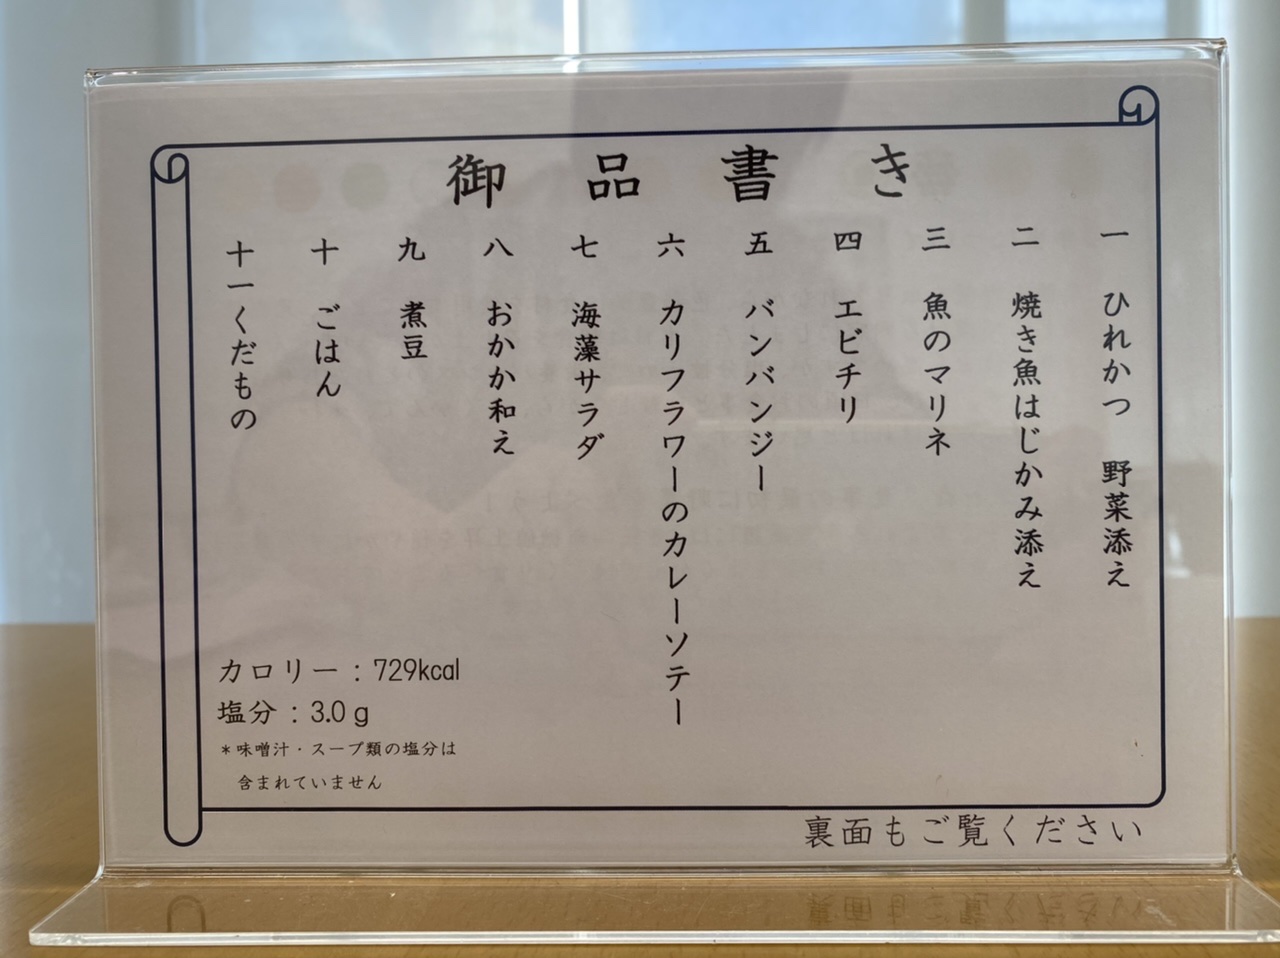 御品書き
一 ひれかつ 野菜添え
二 焼き魚はじかみ添え
三 魚のマリネ
四 エビチリ
五 バンバンジー
六 カリフラワーのカレーソテー
七 海藻サラダ
八 おかか和え
九 煮豆
十 ごはん
十一くだもの
カロリー：729kcal
塩分：3.0g
＊味噌汁・スープ類の塩分は
含まれていません
裏面もご覧ください